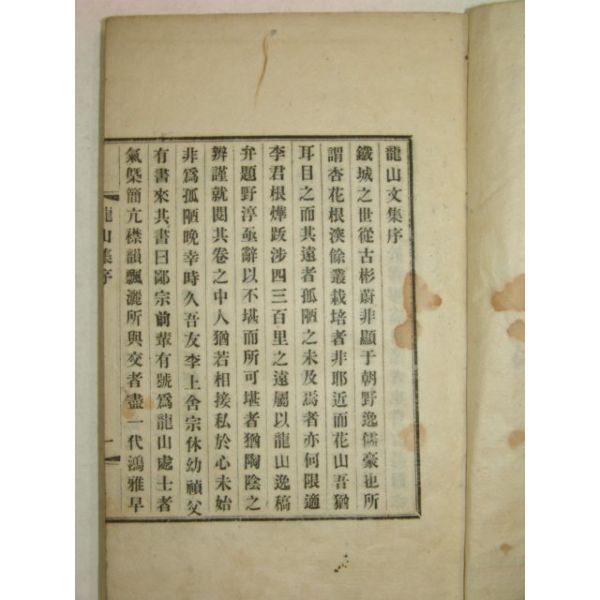 龍山文集序
鐵城之世從古彬蔚非顯于朝野逸儒豪也所
謂杏花根深餘叢栽培者非耶近而花山吾猶
耳目之而其遠者孤陋之未及焉者亦何限適
李君根燁跋涉四三百里之遠屬以龍山逸稿
弁題野淳亟辭以不堪而所可堪者猶陶陰之
辨謹就閱其卷之中人猶若相接私於心未始
非爲孤陋晩幸時久吾友李上舍宗休幼禎父
有書來其書曰鄙宗前輩有號爲龍山處士者
氣槩簡亢襟韻飄灑所與交者盡一代鴻雅早
龍山集序
一